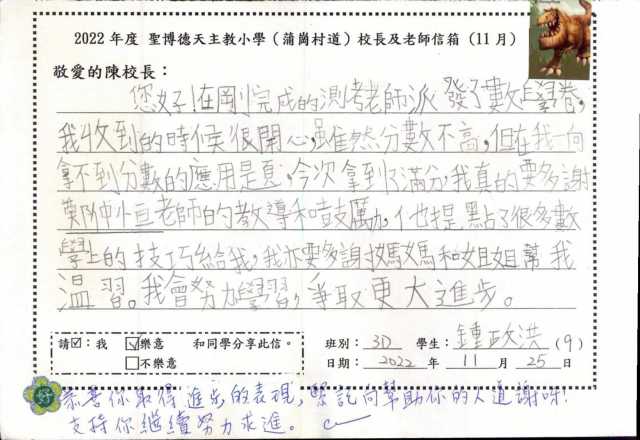 2022 年度 聖博德天主教小學（蒲崗村道）校長及老師信箱（11 月）
敬愛的陳校長：
您好！在剛完成的測考老師派發了數學卷，
我收到的時候很開心，雖然分數不高，但在我一向
拿不到分數的應用題，今次拿到了滿分，我真的要多謝
鄭仲恒老師的教導和鼓勵，他提點了很多數
學上的技巧給我，我亦要多謝媽媽和姐姐幫我
溫習。我會努力學習，爭取更大進步。
請☑：我 ☑樂意 和同學分享此信。
□不樂意
班別： 3D 學生： 鍾政洪 (9)
日期： 2022 年 11 月 25 日
好
恭喜你取得進步的表現，緊記向幫助你的人道謝呀！
支持你繼續努力求進。